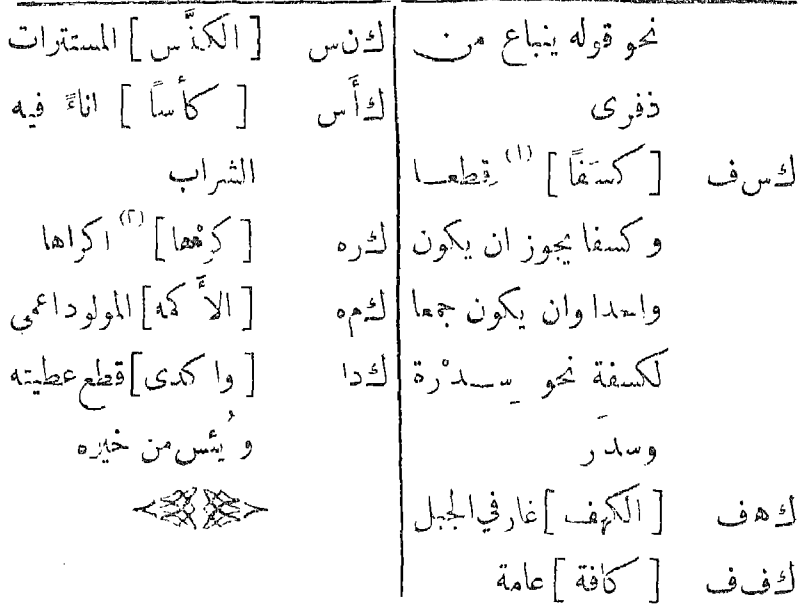 نحو قوله ينباع من
ذفرى
ك س ف [ كسَفًا ] (١) قِطعا
و كسفا يجوز ان يكون
واحدا وان يكون جمعا
لكسفة نحو سِدْرة
وسدَر
ك ه ف [ الكهف ] غار في الجبل
ك ف ف [ كافة ] عامة
ك ن س [ الكنَّس ] المستترات
ك أَ س [ كأساً ] اناءً فيه
الشراب
ك ر ه [ كرْهها ] (٢) اكراها
ك م ه [ الأَكمه ] المولود اعمى
ك د ا [ واكدى ] قطع عطيته
و يُئس من خيره